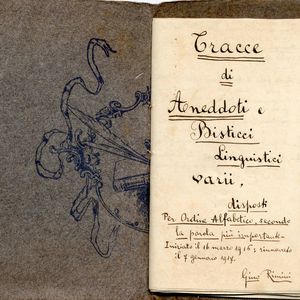 Tracce
di
Aneddoti e
Bisticci
Linguistici
varii,
disposti
Per Ordine Alfabetico, secondo
la parola più importante.
Iniziato il 16 marzo 1916; rinnovato
il 7 gennaio 1917.
Gino Rimini